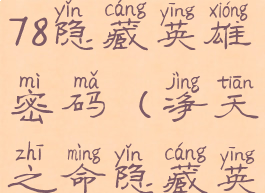 yǐn cáng yīng xióng
78隐藏英雄
mì mǎ jìng tiān
密码(净天
zhī mìng yǐn cáng yīng
之命隐藏英